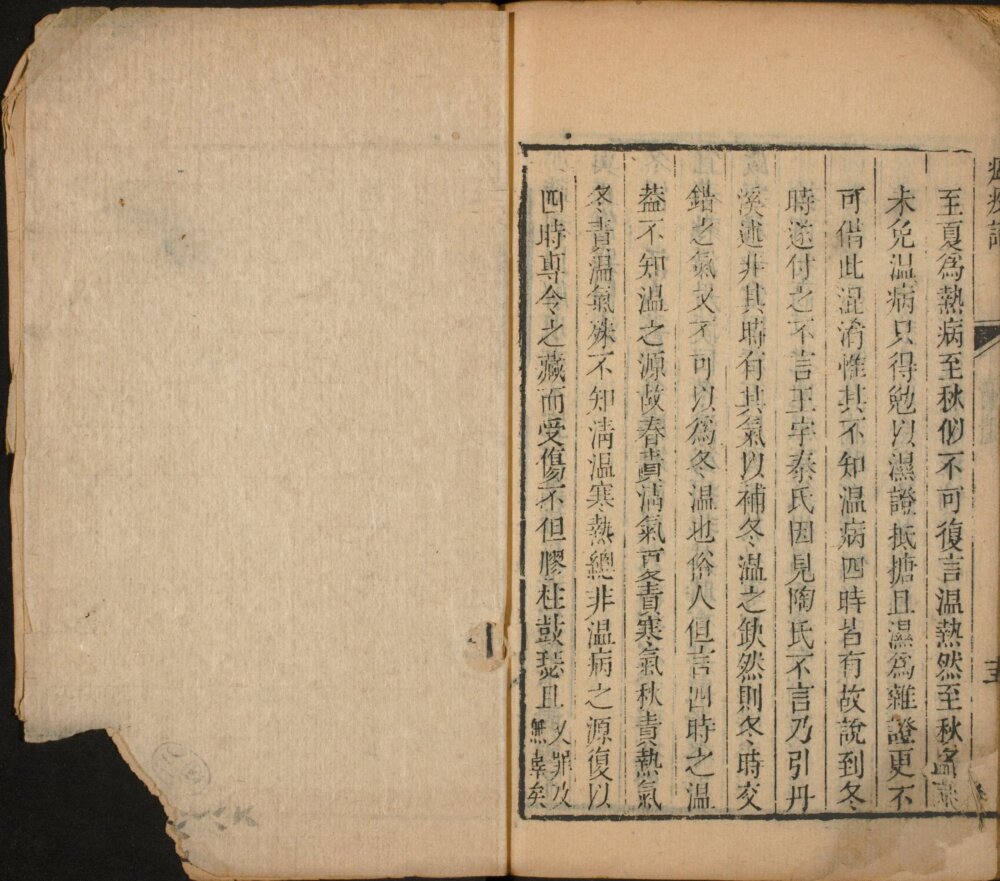 至夏為熱病至秋似不可復言温熱然至秋
未免温病只得勉以濕證抵搪且濕為雜證更不
可借此混淆惟其不知温病四時皆有故說到冬
時遂付之不言王宇泰氏因見陶氏不言乃引丹
溪述非其時有其氣以補冬温之缺然則冬時交
錯之氣又不可以為冬温也俗人但言四時之温
葢不知温之源故春責清氣夏責寒氣秋責熱氣
冬責温氣殊不知清温寒熱總非温病之源復以
四時專令之藏而受傷不但膠柱鼓瑟且又罪及無辜矣